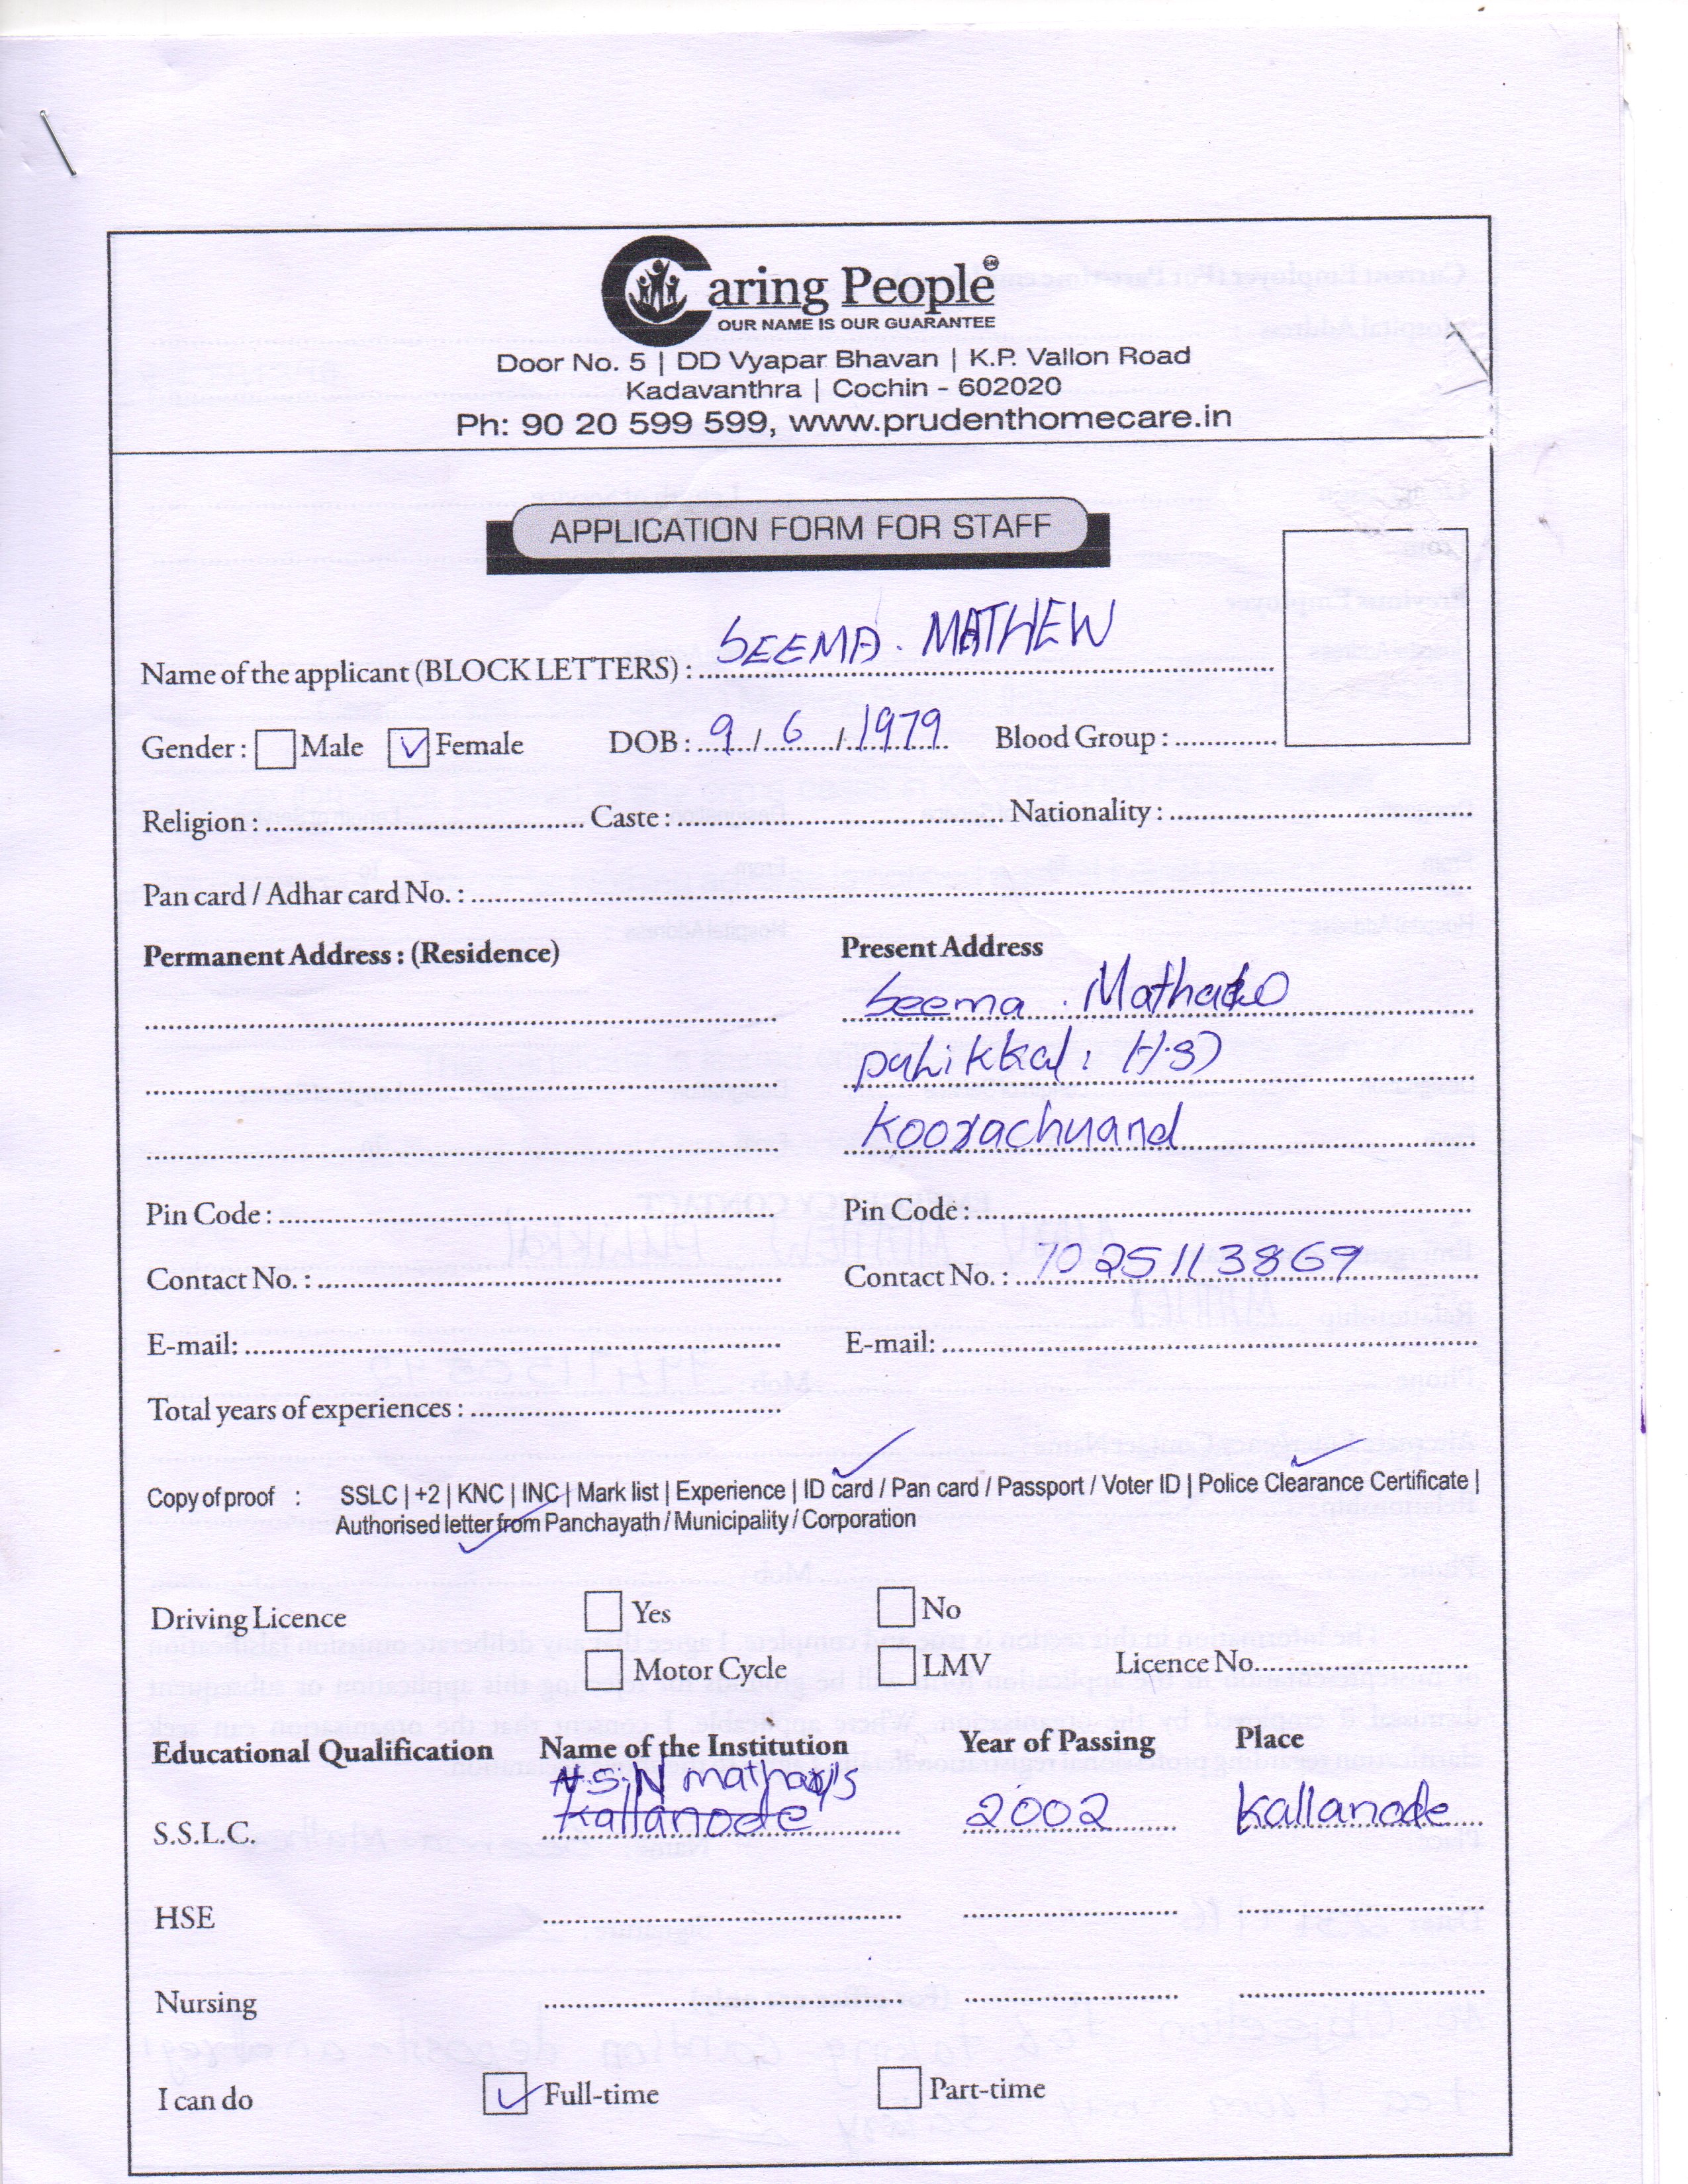 Caring People
OUR NAME IS OUR GUARANTEE
Door No. 5 | DD Vyapar Bhavan | K.P. Vallon Road
Kadavanthra | Cochin - 602020
Ph: 90 20 599 599, www.prudenthomecare.in
APPLICATION FORM FOR STAFF
Name of the applicant (BLOCK LETTERS) : SEEMA. MATHEW
Gender : Male Female DOB : 9 / 6 / 1979 Blood Group :
Religion : Caste : Nationality :
Pan card / Adhar card No. :
Permanent Address : (Residence) Present Address
Seema .
Koorachuand
Pin Code : Pin Code :
Contact No. : Contact No. : 7025113869
E-mail: E-mail:
Total years of experiences :
Copy of proof : SSLC | +2 | KNC | INC | Mark list | Experience | ID card / Pan card / Passport / Voter ID | Police Clearance Certificate |
Authorised letter from Panchayath / Municipality / Corporation
Driving Licence Yes No
Motor Cycle LMV Licence No.
Educational Qualification Name of the Institution Year of Passing Place
S.S.L.C. Kallanode 2002 Kallanode
HSE
Nursing
I can do Full-time Part-time